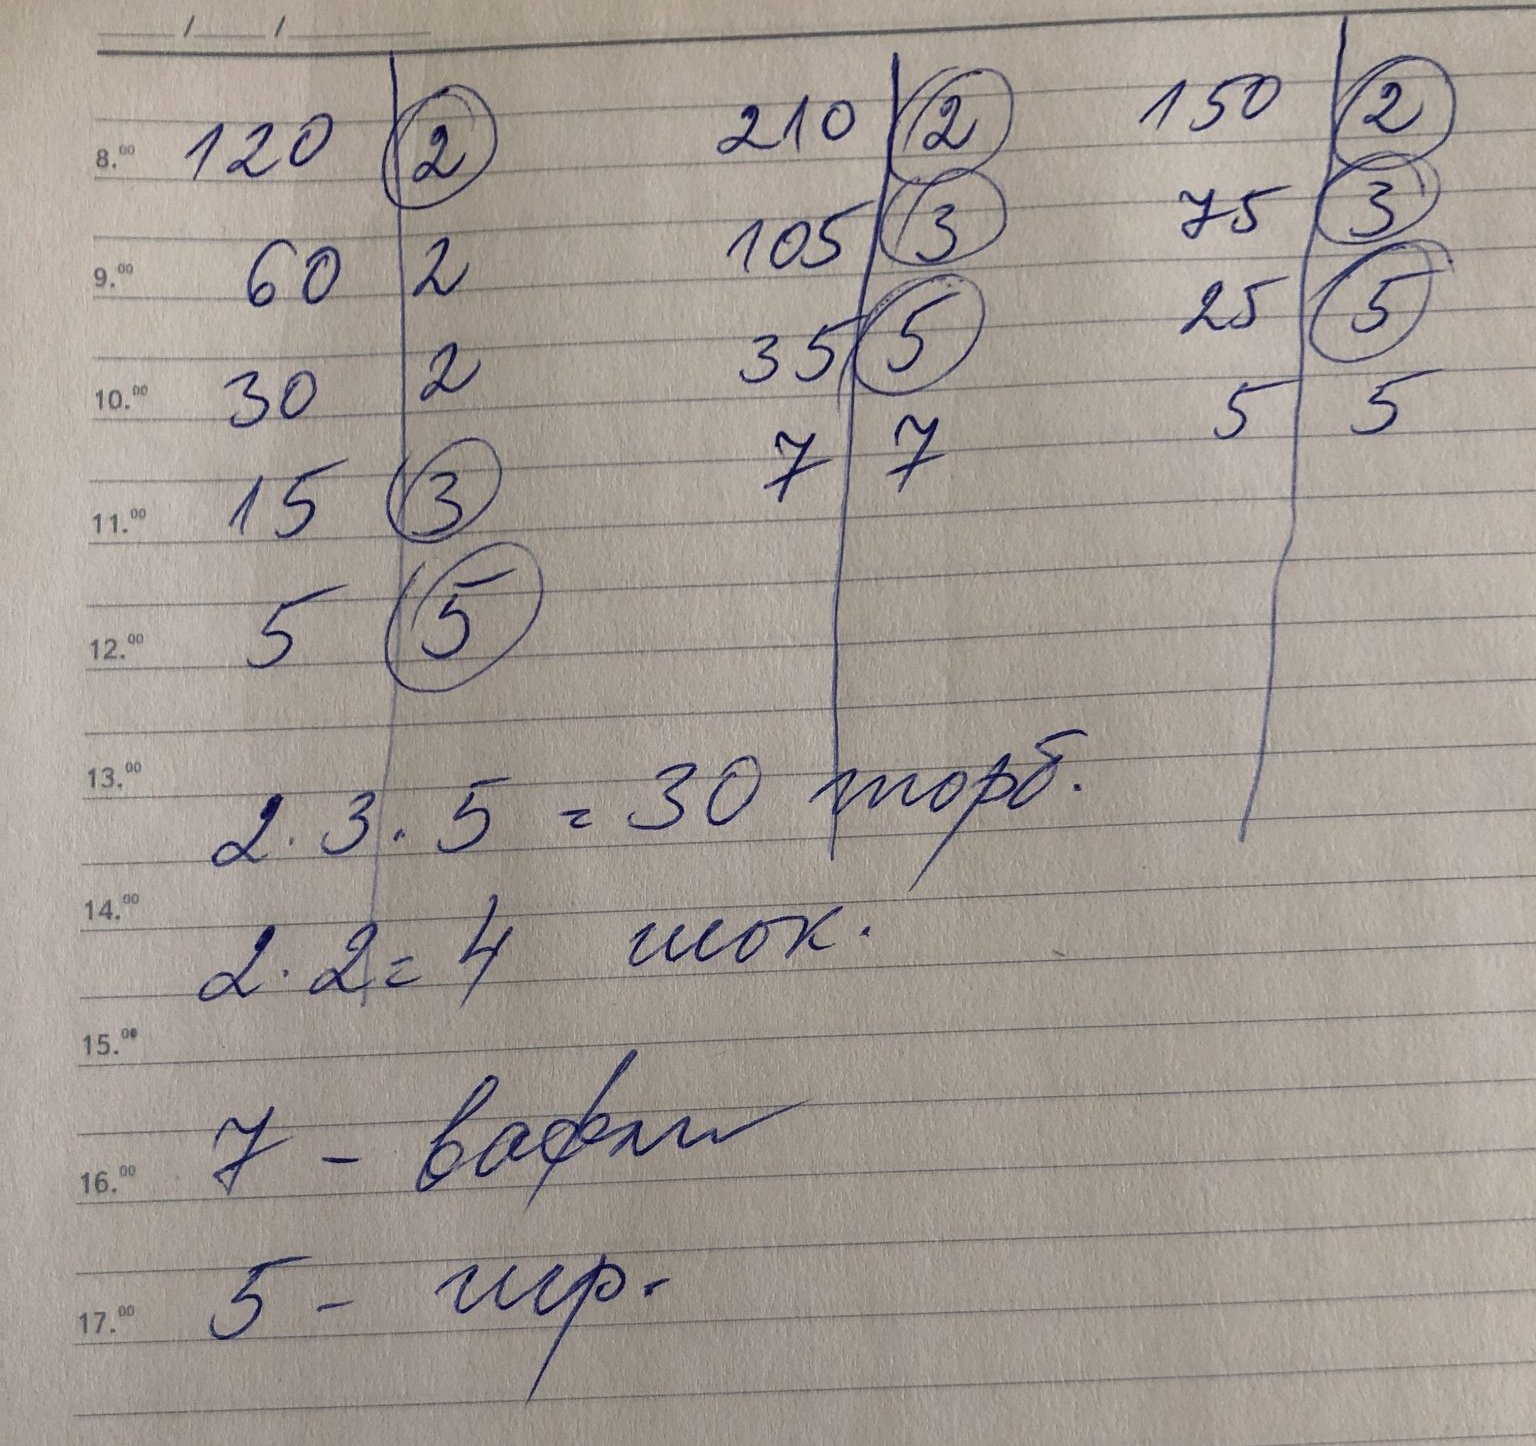 / /
8.00 120 2 210 2 150 2
9.00 60 2 105 3 75 3
10.00 30 2 35 5 25 5
11.00 15 3 7 7 5 5
12.00 5 5
13.00 2.3.5 = 30 торб.
14.00 2.2 = 4 шок.
15.00
16.00 7 - вафли
17.00 5 -